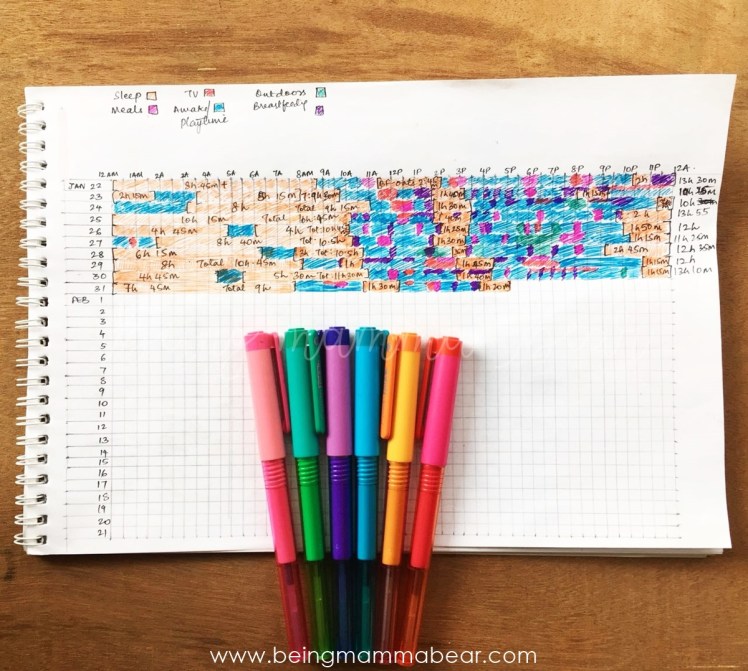 Sleep TV Outdoors
Meals Awake/ Breastfeeding
playtime
12AM 1AM 2A 3A 4A 5A 6A 7A 8AM 9A 10A 11A 12P 1P 2P 3P 4P 5P 6P 7P 8P 9P 10P 11P 12A
JAN 22 8h 45m 2h 13h 30m
23 2h 15m 8h 15m
24 8h Total 9h 15m 1h 30m 10h
25 10h 15m Total 10h 45m 2h 13h 55
26 4h 45m 4h Tot: 1h 50m 12h
27 8h 40m Tot: 10.5h 1h 30m 1h 15m 11h 25m
28 6h 15m 3h Tot: 10.5h 2h 45m
29 8h Total 10h 45m 1h 45m 1h 15m 12h
30 4h 45m 5h 30m Tot 11h 30m 1h 15m 13h 10m
31 7h 45m Total 9h 1h 30m 1h 20m
FEB 1
2
3
4
5
6
7
8
9
10
11
12
13
14
15
16
17
18
19
20
21
www.beingmammabear.com